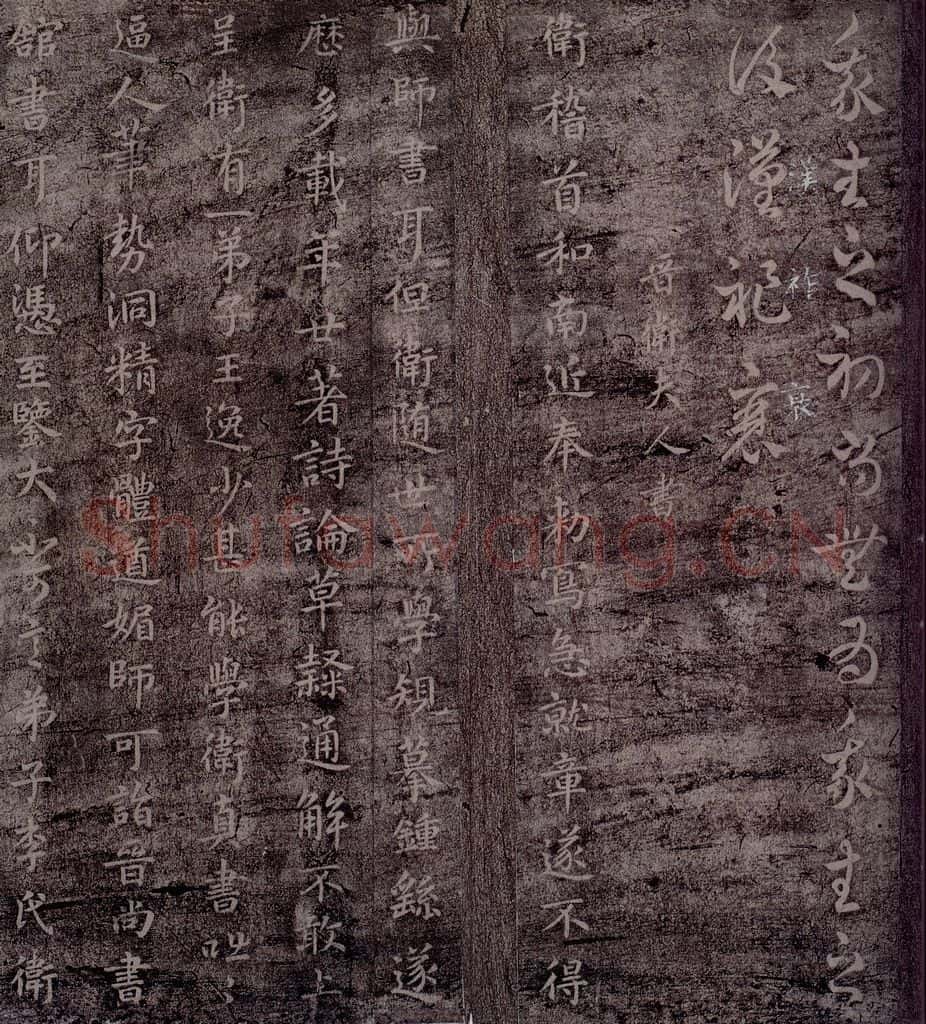 我生之初尚無為我生之
後漢祚衰
漢祚衰
晉衛夫人書
衛稽首和南近奉勑寫急就章遂不得
與師書耳但衛随世所學規摹鍾繇遂
歷多載年廿著詩論草隸通解不敢上
呈衛有一弟子王逸少甚能學衛真書咄々
逼人筆勢洞精字體遒媚師可詣晉尚書
舘書耳仰憑至鑒大不可言弟子李氏衛
Shufawang.CN